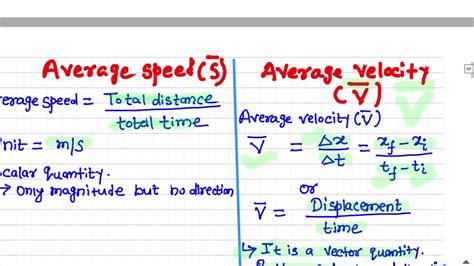 Average speed (S̅)
erage speed = Total distance
total time
nit = m/s
calar quantity.
→ only magnitude but no direction
Average velocity
(V̅)
Average velocity (V̅)
V̅ = Δx/Δt = xf - xi / tf - ti
or
V̅ = Displacement
time
↳ It is a vector quantity.